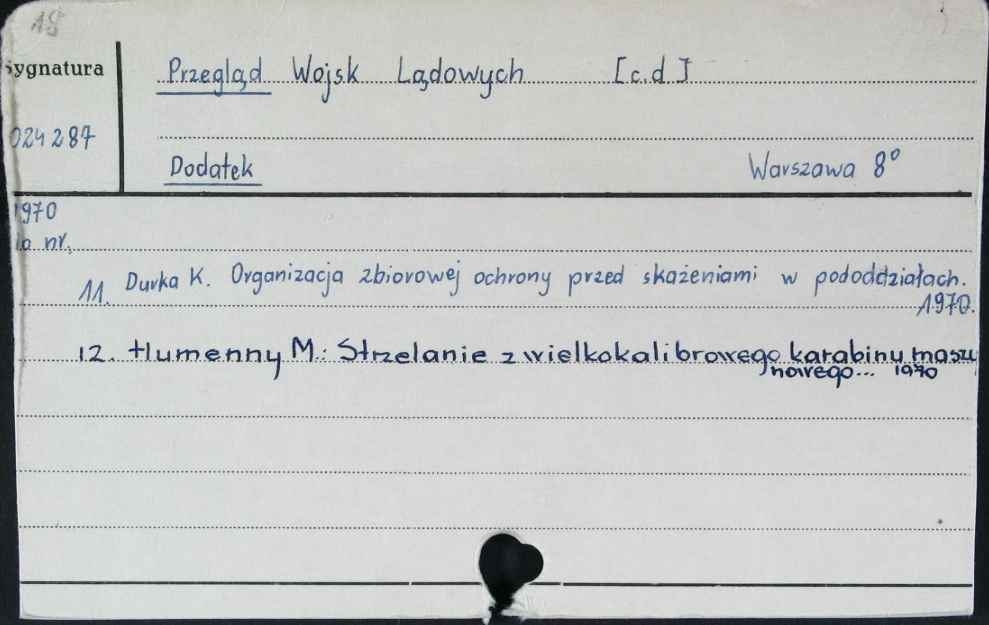 18
Sygnatura
Przegląd Wojsk Lądowych [c.d.]
024287
Dodatek Warszawa 8°
1970
do nr.
11. Durka K. Organizacja zbiorowej ochrony przed skażeniami w pododdziałach.
1970.
12. Humenny M.: Strzelanie z wielkokalibrowego karabinu maszy
nowego... 1970